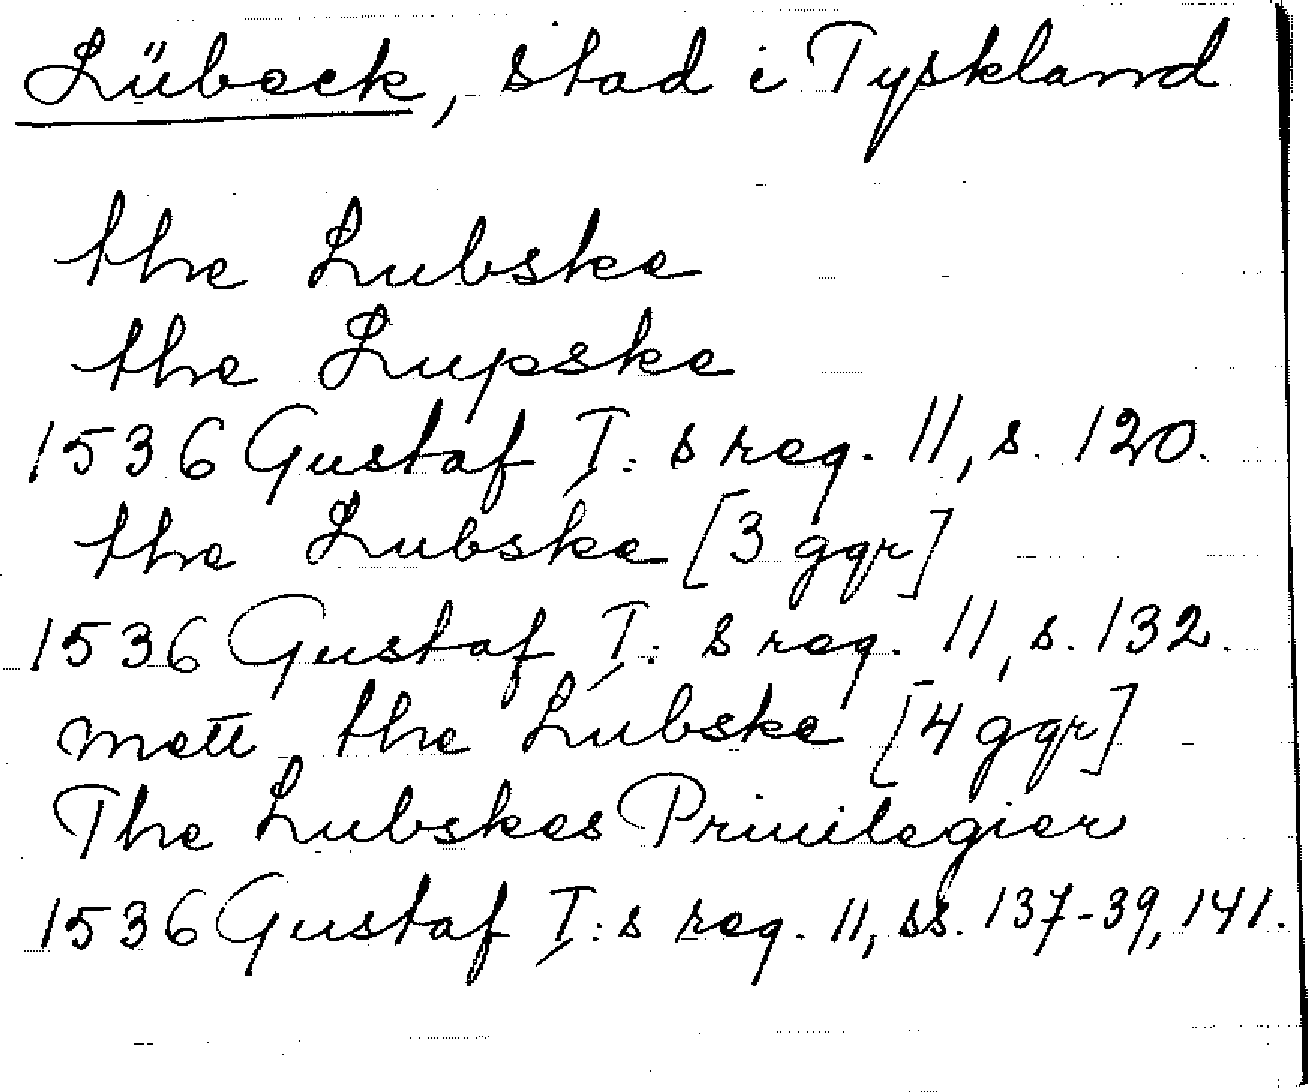 Lübeck, stad i Tyskland
the Lubske
the Lupske
1536 Gustaf I:s reg. 11, s. 120.
the Lubske [3 ggr]
1536 Gustaf I:s reg. 11, s. 132.
mett the Lubske [4 ggr]
The Lubskes Priuilegier
1536 Gustaf I:s reg. 11, ss. 137-39, 141.